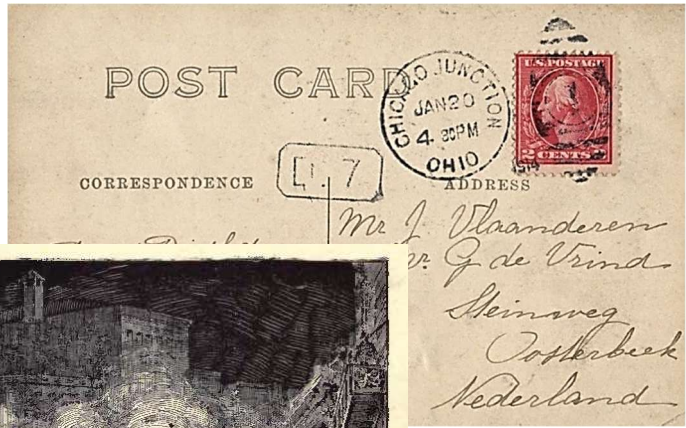 POST CARD
CHICAGO JUNCTION
JAN 20
4 30 PM
OHIO
1914
U.S. POSTAGE
2 CENTS 2
7
CORRESPONDENCE
ADDRESS
Mr J Vlaanderen
Mr. G de Vrind
Steinweg
Oosterbeek
Nederland